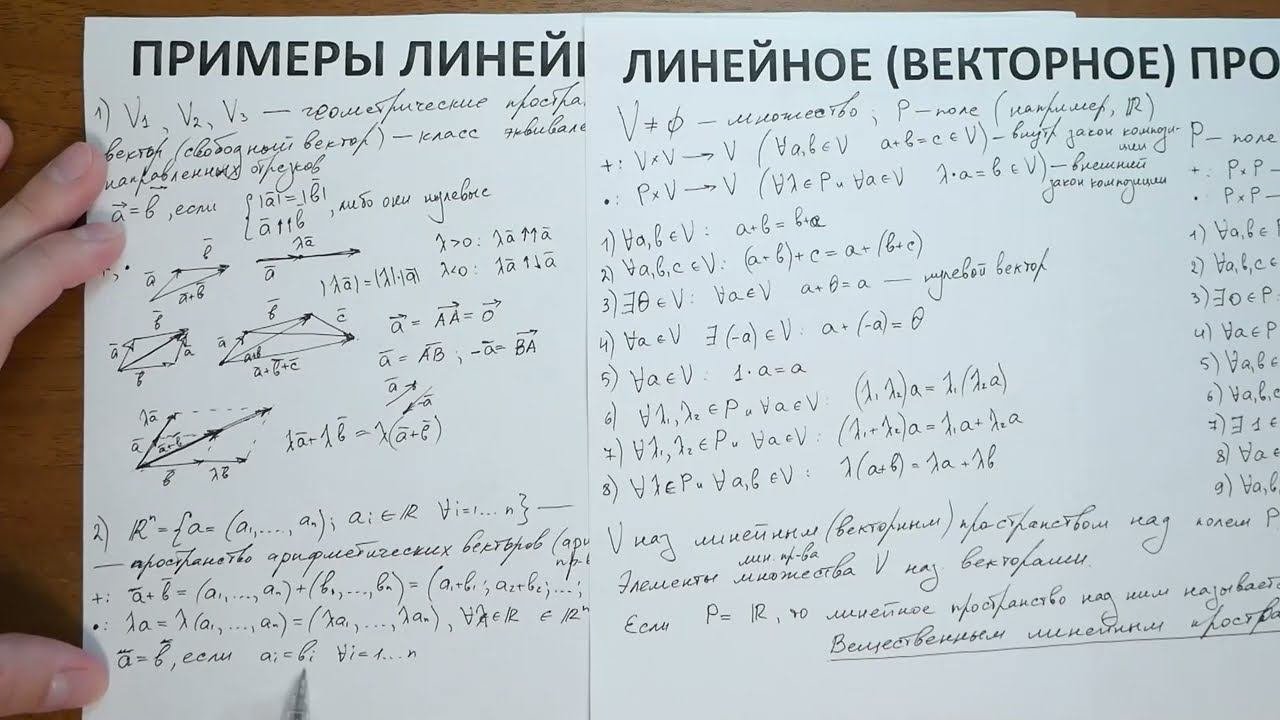 ПРИМЕРЫ ЛИНЕЙ
1) V₁, V₂, V₃ — геометрические простра
вектор (свободный вектор) — класс эквивале
направленных отрезков
a⃗ = b⃗, если { |a̅| = |b̅| , либо они нулевые
a̅ ↑↑ b̅
a̅ b̅ a̅+b̅
λa̅ a̅
λ>0: λa̅ ↑↑ a̅
|λa̅| = |λ|·|a̅| λ<0: λa̅ ↑↓ a̅
b̅ a̅ a̅ b̅
b̅ c̅ a̅ a+b a̅+b̅+c̅
a⃗ = AA⃗ = 0⃗
a̅ = AB⃗ ; -a̅ = BA⃗
a̅ -a̅
λa̅ a̅ a+b b̅ λb̅
λa̅+λb̅ = λ(a̅+b̅)
2) ℝⁿ = {a = (a₁,...,aₙ); aᵢ ∈ ℝ ∀i=1...n} —
— пространство арифметических векторов (ари
пр-в
+: a̅+b̅ = (a₁,...,aₙ)+(b₁,...,bₙ) = (a₁+b₁; a₂+b₂;...;
•: λa = λ(a₁,...,aₙ) = (λa₁,...,λaₙ), ∀λ∈ℝ ∈ ℝⁿ
a̅ = b̅, если aᵢ = bᵢ ∀i=1...n
ЛИНЕЙНОЕ (ВЕКТОРНОЕ) ПРО
V ≠ ∅ — множество; P — поле (например, ℝ)
+: V×V → V (∀a,b∈V a+b=c∈V) — внутр закон компози-
ции
•: P×V → V (∀λ∈P и ∀a∈V λ·a=b∈V) — внешний
закон композиции
1) ∀a,b∈V: a+b=b+a
2) ∀a,b,c∈V: (a+b)+c=a+(b+c)
3) ∃θ∈V: ∀a∈V a+θ=a — нулевой вектор
4) ∀a∈V ∃(-a)∈V: a+(-a)=θ
5) ∀a∈V: 1·a=a
6) ∀λ₁,λ₂∈P и ∀a∈V: (λ₁λ₂)a=λ₁(λ₂a)
7) ∀λ₁,λ₂∈P и ∀a∈V: (λ₁+λ₂)a=λ₁a+λ₂a
8) ∀λ∈P и ∀a,b∈V: λ(a+b)=λa+λb
V наз линейным (векторным) пространством над полем P
лин. пр-ва
Элементы множества V наз. векторами.
Если P=ℝ, то линейное пространство над ним называетс
Вещественным линейным простра
P — поле
+: P×P —
•: P×P —
1) ∀a,b∈P
2) ∀a,b,c∈
3) ∃0∈P:
4) ∀a∈P
5) ∀a,b∈
6) ∀a,b,c
7) ∃1∈
8) ∀a∈
9) ∀a,b,